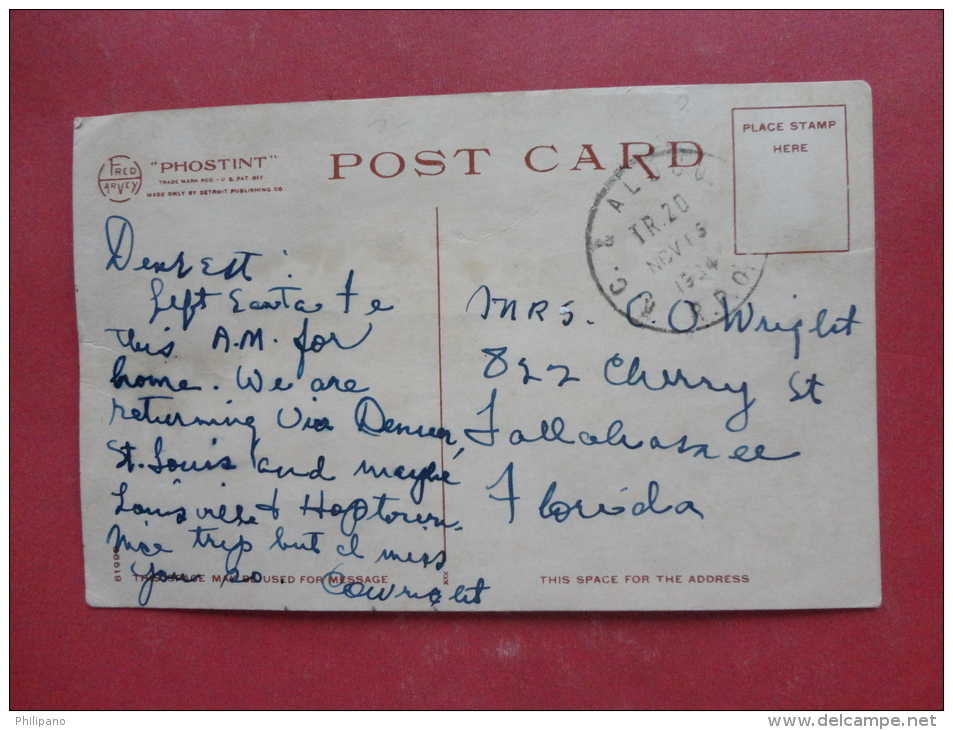 FRED HARVEY
"PHOSTINT"
TRADE MARK REG. U.S. PAT. OFF.
MADE ONLY BY DETROIT PUBLISHING CO
POST CARD
PLACE STAMP
HERE
& ALBUQ.
TR. 20
NOV 16
R.P.O.
Dearest:
Left Santa Fe
this A.M. for
home. We are
returning via Denver,
St. Louis and maybe
Louisville & Hoptown.
Nice trip but I miss
you so. COWright
MRS. C O Wright
822 Cherry St
Tallahassee
Florida
THIS SPACE MAY BE USED FOR MESSAGE
THIS SPACE FOR THE ADDRESS
Philipano
www.delcampe.net